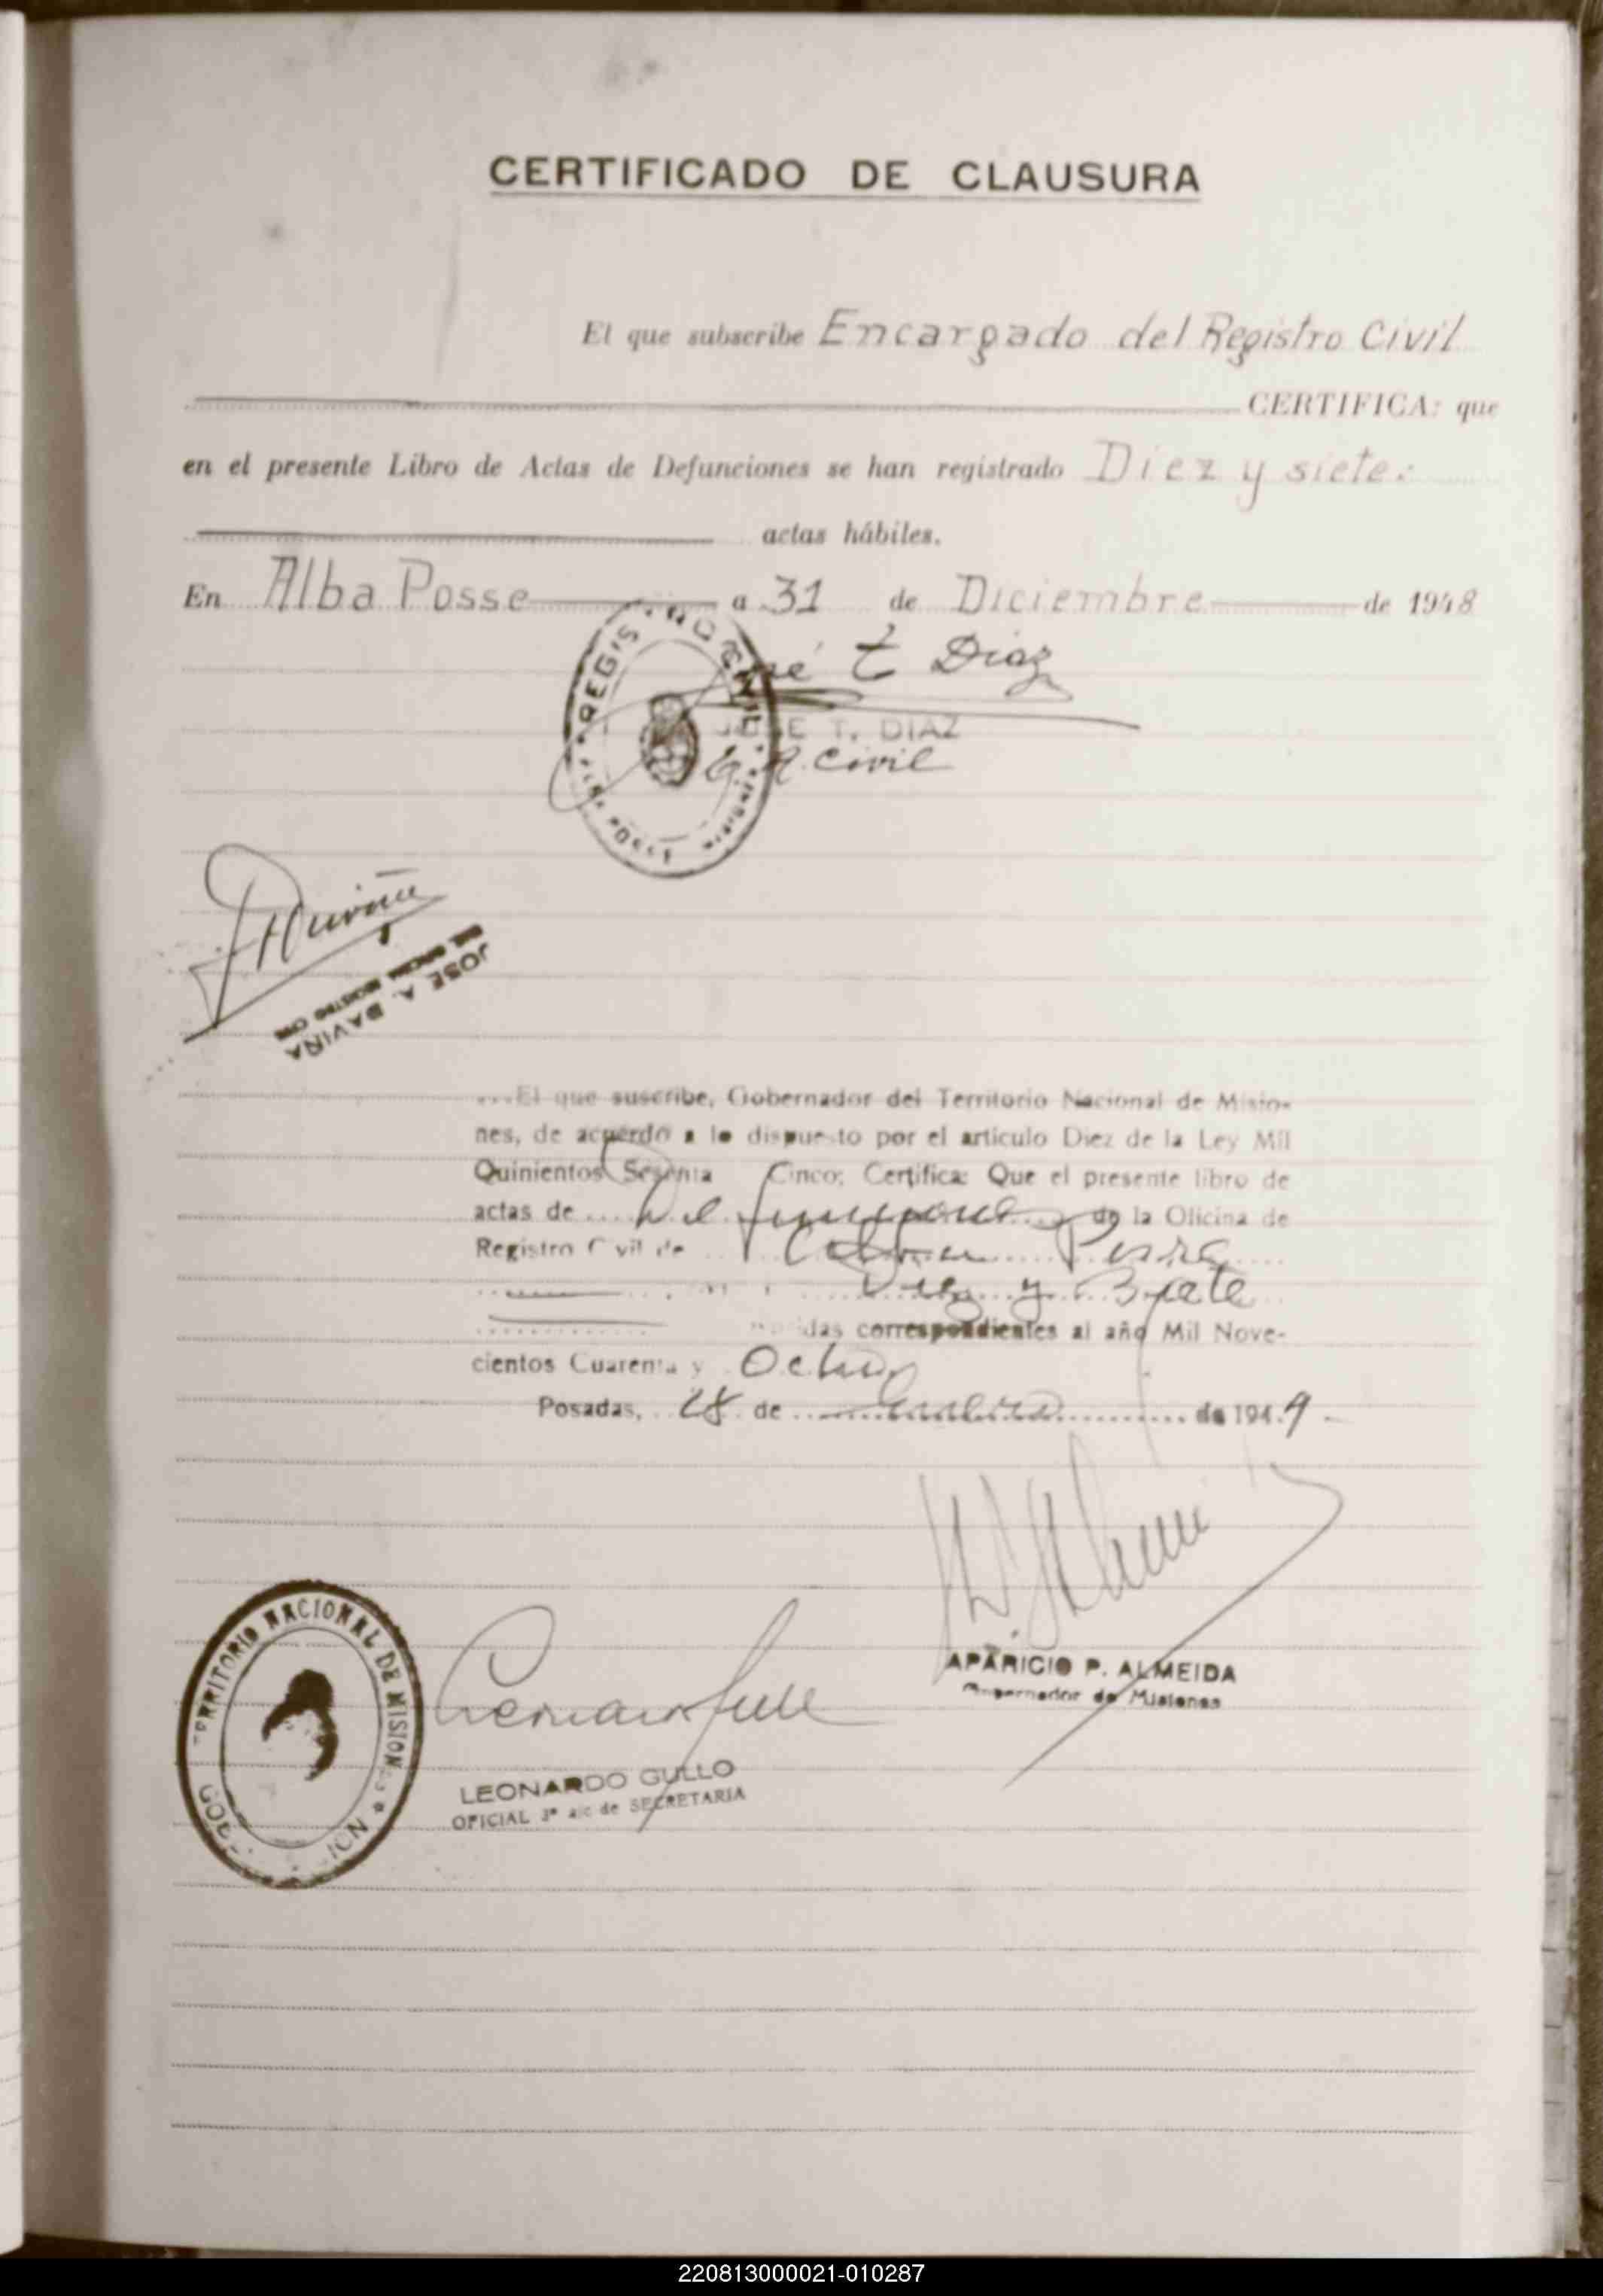 CERTIFICADO DE CLAUSURA
El que subscribe Encargado del Registro Civil
CERTIFICA: que
en el presente Libro de Actas de Defunciones se han registrado Diez y siete.
actas hábiles.
En Alba Posse a 31 de Diciembre de 1948
José T Diaz
JOSE T. DIAZ
E. R. Civil
REGISTRO CIVIL
ALBA POSSE MISIONES
JOSE A. DAVIÑA
REGISTRO CIVIL
El que suscribe, Gobernador del Territorio Nacional de Misio-
nes, de acuerdo a lo dispuesto por el artículo Diez de la Ley Mil
Quinientos Sesenta Cinco; Certifica: Que el presente libro de
actas de Defunciones de la Oficina de
Registro Civil de Alba Posse
Diez y Siete
correspondientes al año Mil Nove-
cientos Cuarenta y Ocho
Posadas, 28 de de 1949
APARICIO P. ALMEIDA
Gobernador de Misiones
TERRITORIO NACIONAL DE MISIONES
LEONARDO GULLO
OFICIAL 3º a|c de SECRETARIA
220813000021-010287